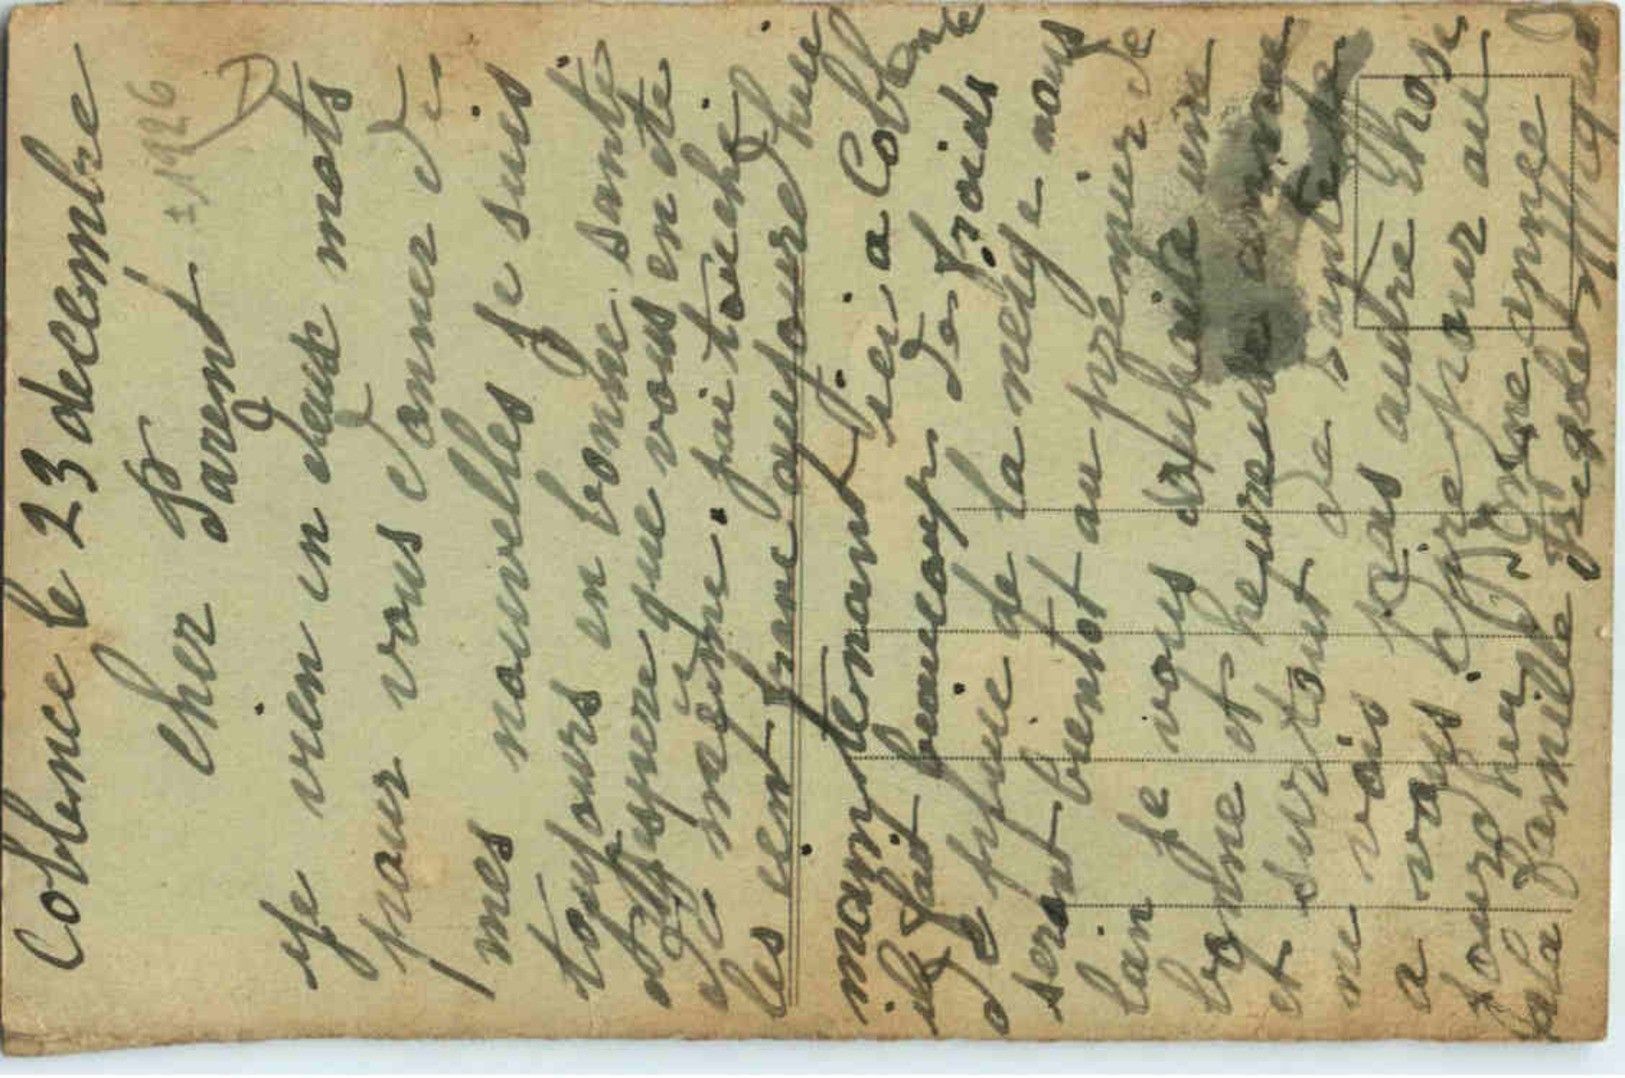 Coblence le 23 decembre
± 1926
D
cher Parent
Je vien en deux mots
pour vous donner de
mes nouvelles je suis
toujours en bonne sante
et j'espere que vous en ete
de meme. j'ai touché
les cent franc aujourd hui
maintenant ici a Coblence
il fait beaucoup de froids
de pluie de la neige nous
seront bientot au premier de
lain je vous souhaite une
bonne et heureuse année
et surtout de sante
ne vois pas autre chose
a vous dire pour au
jourd hui
la famille